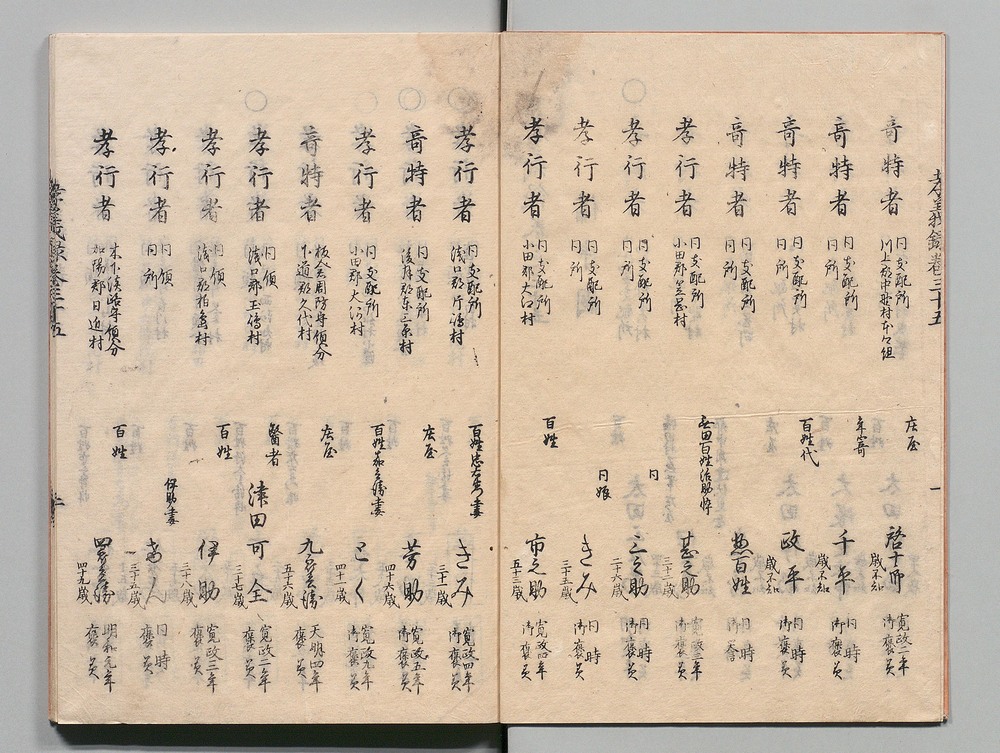 孝義録巻三十五
奇特者 同支配所 川上郡中野村本々組 庄屋 太田啓十郎 歳不知 寛政二年 御褒美
奇特者 同支配所 同所 年寄 千平 歳不知 同時 御褒美
奇特者 同支配所 同所 百姓代 政平 歳不知 同時 御褒美
奇特者 同支配所 同所 惣百姓 同時 御誉
孝行者 同支配所 小田郡笠岡村 無田百姓治助忰 甚之助 三十二歳 寛政三年 御褒美
孝行者 同支配所 同所 同 三之助 二十六歳 同時 御褒美
孝行者 同支配所 同所 同娘 きみ 三十五歳 同時 御褒美
孝行者 同支配所 小田郡大江村 百姓 市之助 五十三歳 寛政四年 御褒美
孝行者 同支配所 浅口郡片島村 百姓忠右衛門妻 きみ 三十一歳 寛政四年 御褒美
奇特者 同支配所 後月郡東三原村 庄屋 芳助 四十歳 寛政五年 御褒美
孝行者 同支配所 小田郡大河村 百姓 妻 とく 四十二歳 寛政九年 御褒美
奇特者 板倉周防守領分 下道郡久代村 庄屋 九郎兵衛 五十六歳 天明四年 褒美
孝行者 同領 浅口郡玉島村 醫者 津田可全 三十七歳 寛政二年 褒美
孝行者 同領 浅口郡柏島村 百姓 伊助 三十八歳 寛政三年 褒美
孝行者 同領 同所 伊助妻 三十六歳 同時 褒美
孝行者 木下淡路守領分 加陽郡日近村 百姓 四郎兵衛 四十九歳 明和元年 褒美
孝義録巻三十五